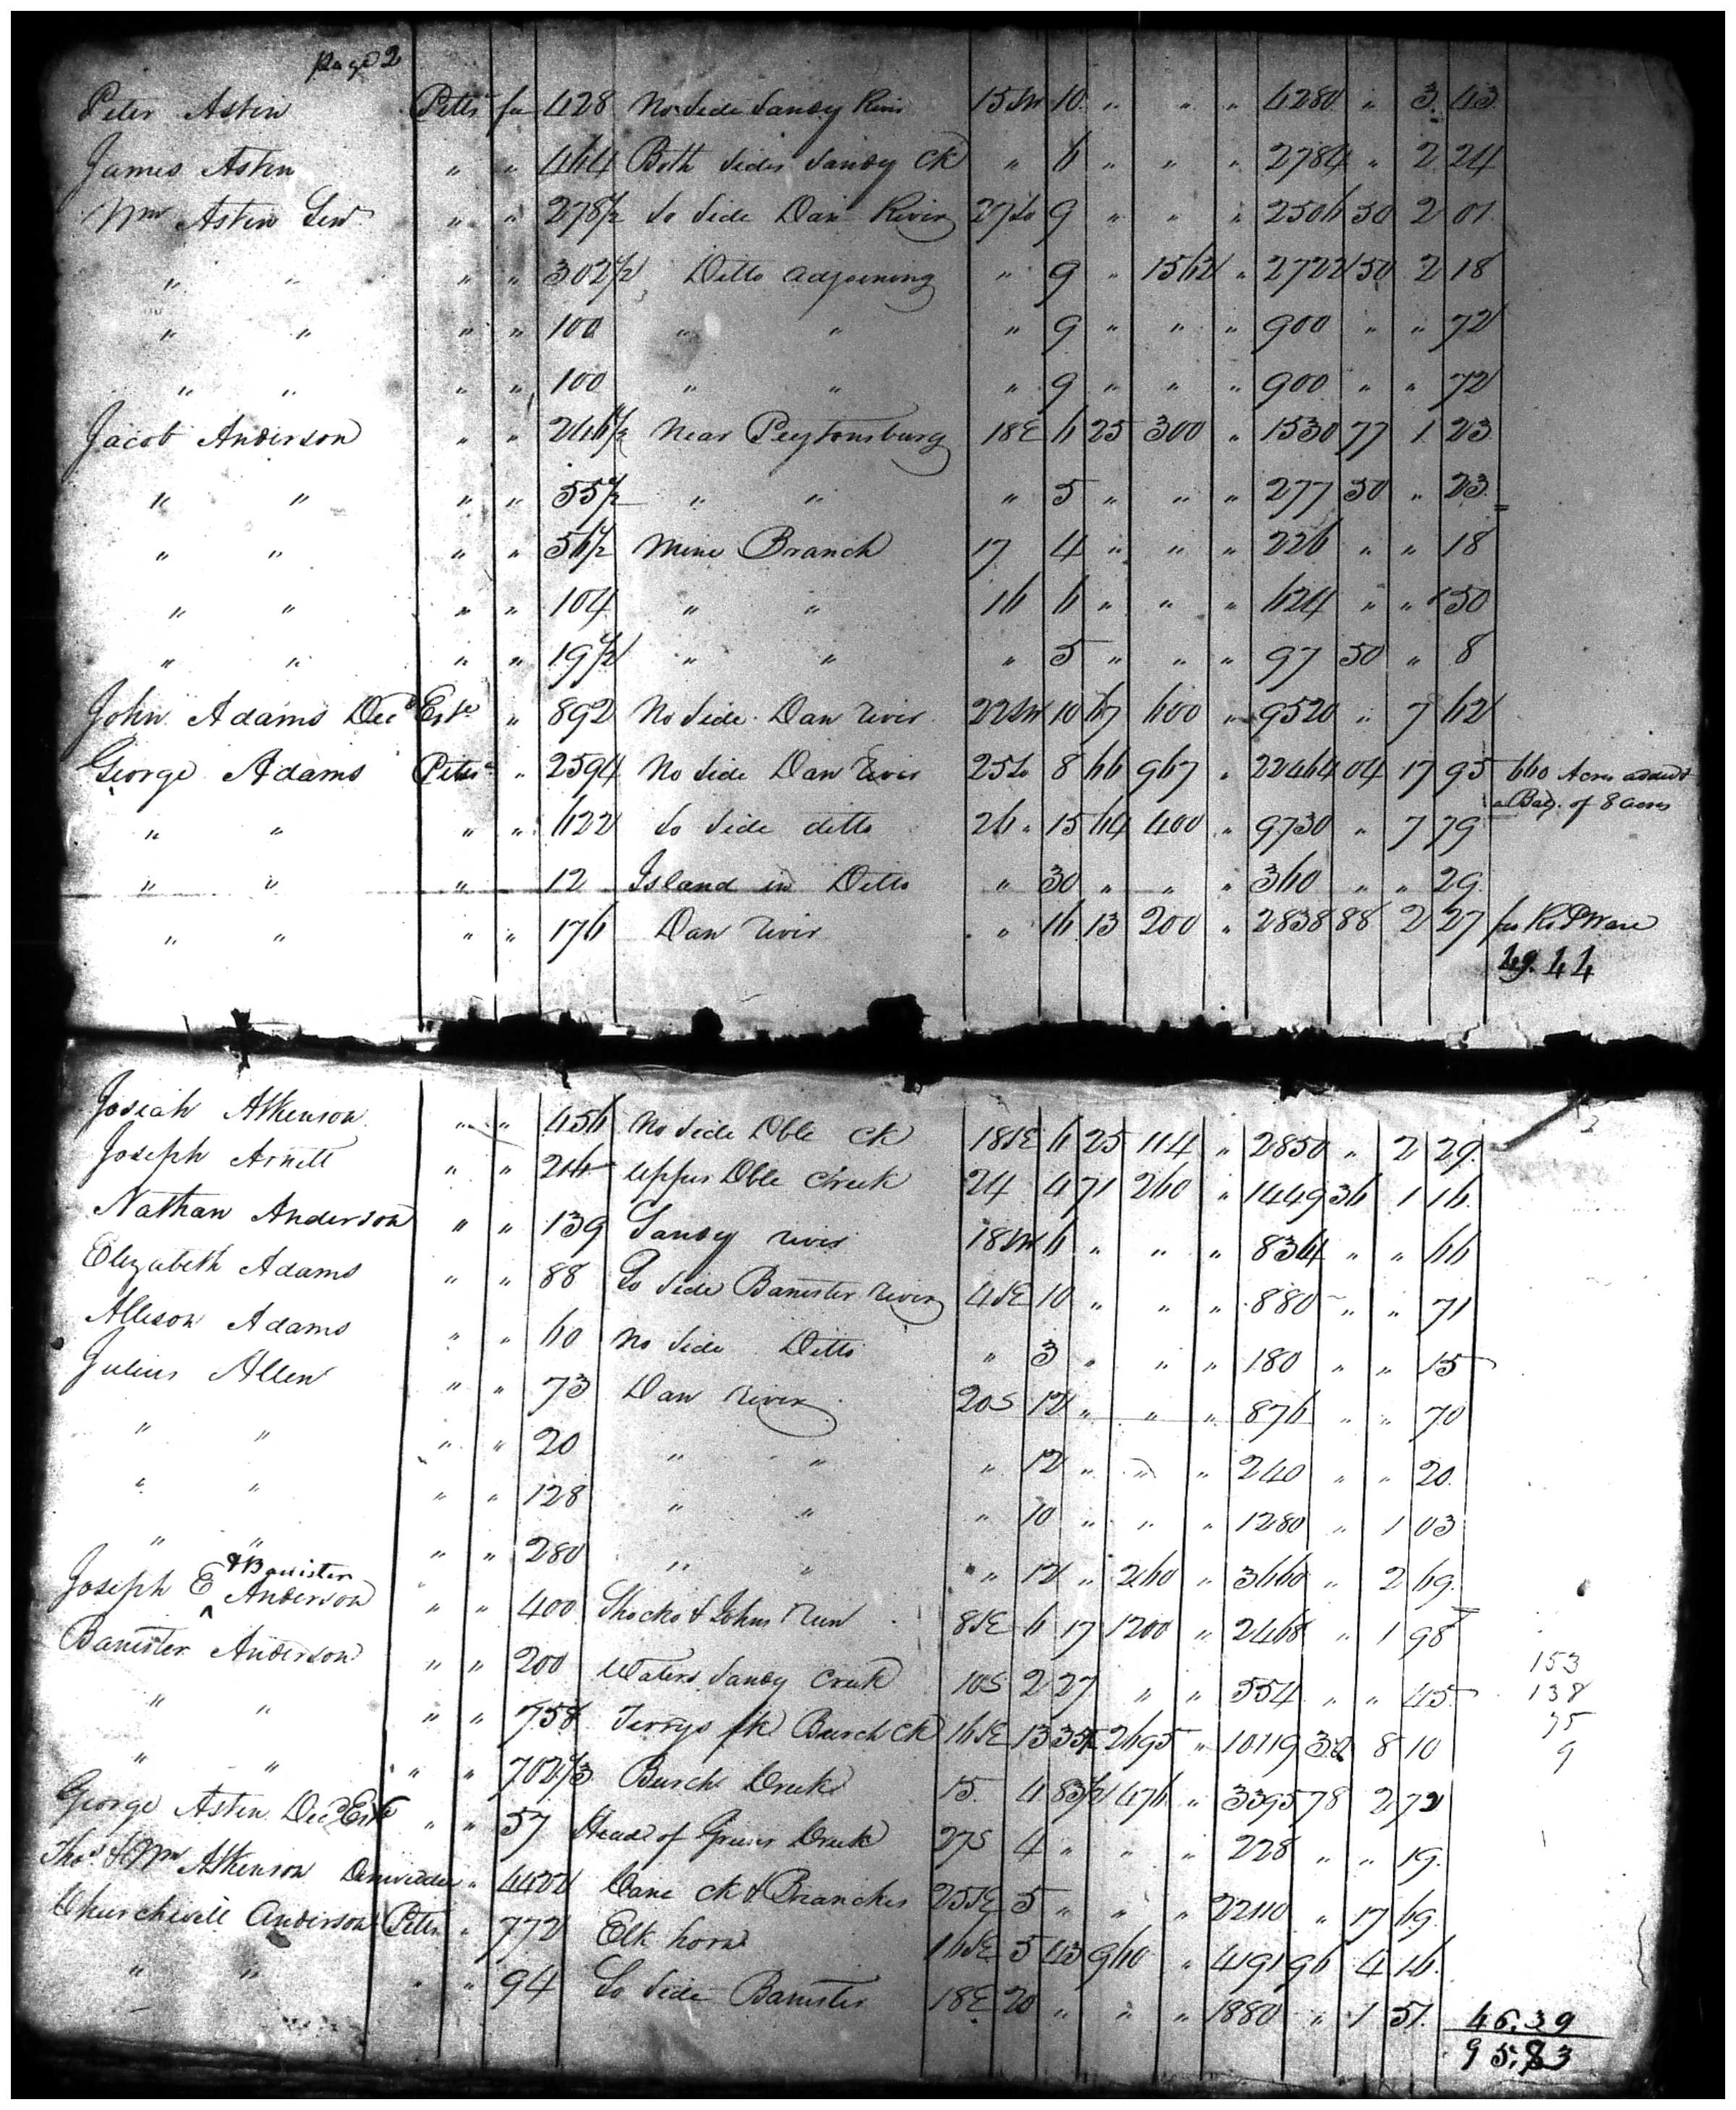 Page 2
Peter Astin Pitts fee 428 No Side Sandy River 15 SW 10 " " " 4280 " 3 43
James Astin " " 464 Both Sides Sandy Ck " 6 " " " 2784 " 2 24
Wm Astin Senr " " 278½ So Side Dan River 27 So 9 " " " 2506 50 2 01
" " " " 302½ Ditto adjoining " 9 " 1562 " 2722 50 2 18
" " " " 100 " " " 9 " " " 900 " " 72
" " " " 100 " " " 9 " " " 900 " " 72
Jacob Anderson " " 246½ Near Peytonsburg 18 E 6 25 300 " 1530 77 1 23
" " " " 55½ " " " 5 " " " 277 50 " 23
" " " " 56½ Mine Branch 17 4 " " " 226 " " 18
" " " " 104 " " 16 6 " " " 624 " " 50
" " " " 19½ " " " 5 " " " 97 50 " 8
John Adams Decd Este " 892 No Side Dan river 22 SW 10 67 600 " 9520 " 7 62
George Adams Pitts " 2594 No Side Dan River 25 So 8 66 967 " 22464 04 17 95 660 Acres added
a Bag. of 8 acres
" " " " 622 So Side ditto 26 " 15 64 400 " 9730 " 7 79
" " " 12 Island in Ditto " 30 " " " 360 " " 29
" " " " 176 Dan river " 16 13 200 " 2838 88 2 27
49.44
Josiah Atkenson " " 456 No Side Dble Ck 18 SE 6 25 114 " 2850 " 2 29
Joseph Arnett " " 246 Upper Dble Creek 24 4 71 260 " 1449 36 1 16
Nathan Anderson " " 139 Sandy river 18 SW 6 " " " 834 " " 66
Elizabeth Adams " " 88 So Side Banister river 4 SE 10 " " " 880 " " 71
Allison Adams " " 60 No Side Ditto " 3 " " " 180 " " 15
Julius Allen " " 73 Dan River 20 S 12 " " " 876 " " 70
" " " " 20 " " " 12 " " " 240 " " 20
" " " " 128 " " " 10 " " " 1280 " 1 03
" " " " 280 " " " 12 " 260 " 3660 " 2 69
& Banister
Joseph E ^ Anderson " " 400 Shocko & Johns Run 8 SE 6 17 1200 " 2468 " 1 98
Banister Anderson " " 200 Waters Sandy Creek 10 S 2 27 " " 554 " " 45 153
" " " " 758 Terrys fk Burch Ck 16 SE 13 35½ 2695 " 10119 32 8 10 138
75
" " " " 702⅓ Burch Creek 15 4 83½ 476 " 3395 78 2 72 9
George Astin Decd Este " " 57 Head of Greens Creek 27 S 4 " " " 228 " " 19
Thos & Wm Atkenson Dinwiddie " 4422 Cane Ck & Branches 25 SE 5 " " " 22110 " 17 69
Churchwill Anderson Pitts " 772 Elk horn 16 SE 5 43 960 " 4191 96 4 16
" " " " 94 So Side Banister 18 E 20 " " " 1880 " 1 51
46.39
95.83